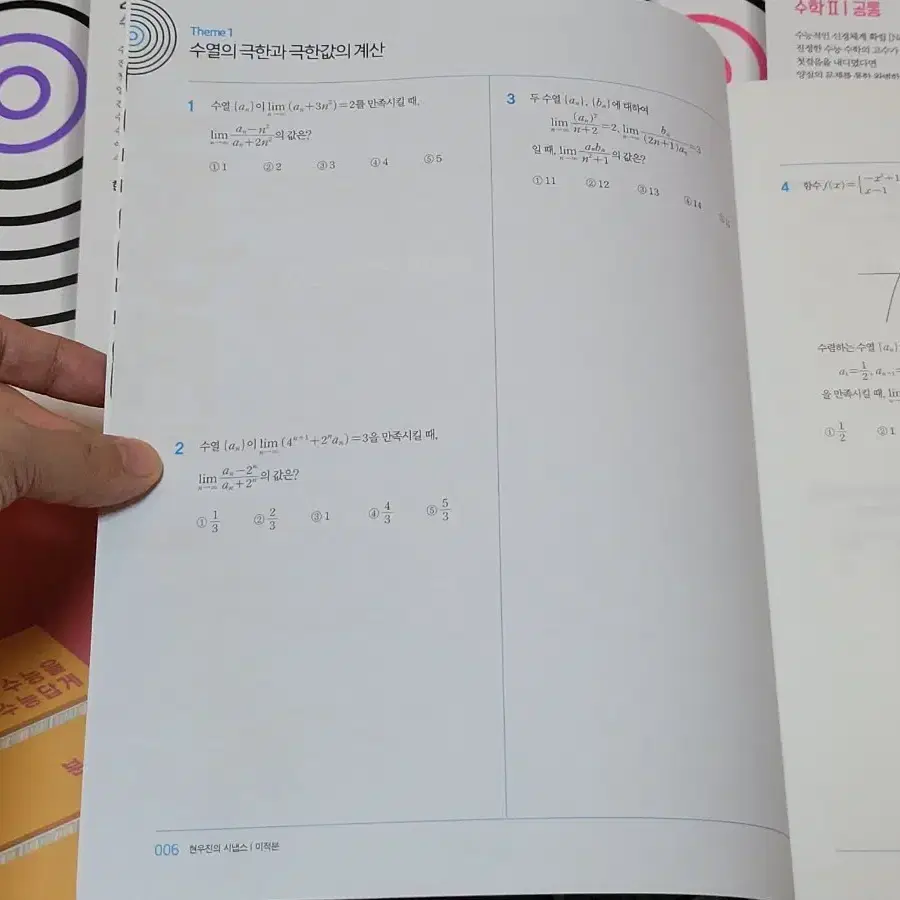 Theme 1
수열의 극한과 극한값의 계산
1 수열 {aₙ}이 lim(n→∞) (aₙ+3n²)=2를 만족시킬 때,
lim(n→∞) (aₙ-n²)/(aₙ+2n²)의 값은?
① 1 ② 2 ③ 3 ④ 4 ⑤ 5
2 수열 {aₙ}이 lim(n→∞) (4ⁿ⁺¹+2ⁿaₙ)=3을 만족시킬 때,
lim(n→∞) (aₙ-2ⁿ)/(aₙ+2ⁿ)의 값은?
① 1/3 ② 2/3 ③ 1 ④ 4/3 ⑤ 5/3
3 두 수열 {aₙ}, {bₙ}에 대하여
lim(n→∞) (aₙ)²/(n+2)=2, lim(n→∞) bₙ/((2n+1)aₙ)=3
일 때, lim(n→∞) aₙbₙ/(n²+1)의 값은?
① 11 ② 12 ③ 13 ④ 14
006 현우진의 시냅스 | 미적분
수학 II | 공통
첫걸음을 내디뎠다면
4 함수 f(x)={-x²+1
x-1
수렴하는 수열 {aₙ}
a₁=1/2,
을 만족시킬 때,
① 1/2 ② 1
수능을
수능답게